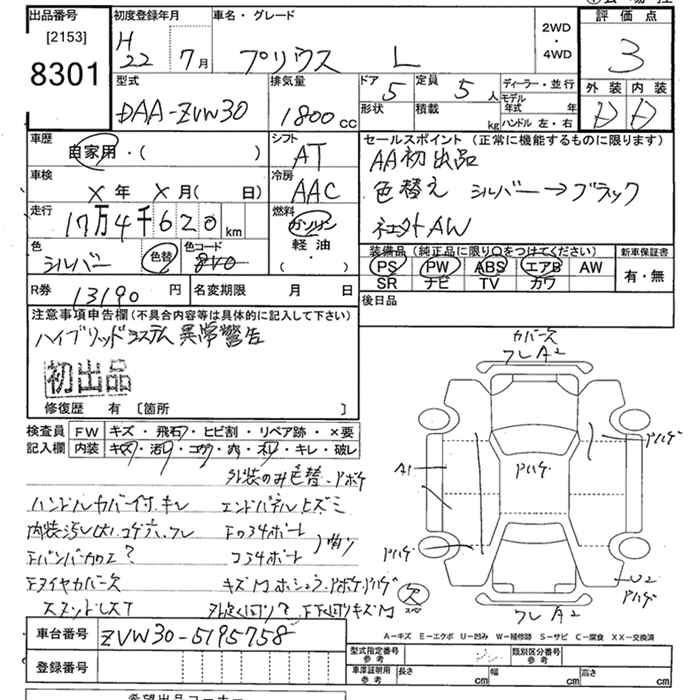 出品番号
[2153]
8301
初度登録年月
H 22 7月
車名・グレード
プリウス L
2WD
・
4WD
評価点
3
外装 内装
D D
型式
DAA-ZVW30
排気量
1800 CC
ドア 5
形状
定員 5人
積載 kg
ディーラー・並行
モデル年式 年
ハンドル 左・右
車歴
自家用・( )
シフト
AT
セールスポイント (正常に機能するものに限ります)
AA初出品
色替え シルバー→ブラック
社外AW
車検
X年 X月( 日)
冷房
AAC
走行
17万4千620 km
燃料
ガソリン
軽油
( ・ )
色
シルバー 色替
色コード
装備品 (純正品に限り○をつけてください)
PS PW ABS エアB AW
SR ナビ TV カワ
新車保証書
有・無
R券 13190円
名変期限 月 日
後日品
注意事項申告欄(不具合内容等は具体的に記入して下さい)
ハイブリッドシステム異常警告
初出品
修復歴 有 [箇所 ]
検査員記入欄
FW キズ・飛石・ヒビ割・リペア跡・×要
内装 キズ・汚レ・コゲ・穴・スレ・キレ・破レ
外装のみ色替
ハンドルカバー付、キレ
エンドパネルヒズミ
Fコアサポート
コアサポート
Fバンパー加工?
Fタイヤカバー欠
カバー欠
フレA2
Pハゲ
A1
Pハゲ
Pハゲ
Pハゲ
U2
欠
フレA2
A－キズ E－エクボ U－凹み W－補修跡 S－サビ C－腐食 XX－交換済
車台番号 ZVW30-5195758
登録番号
型式指定番号 参考
類別区分番号 参考
車庫証明用 参考 長さ cm 幅 cm 高さ cm
希望出品コーナー